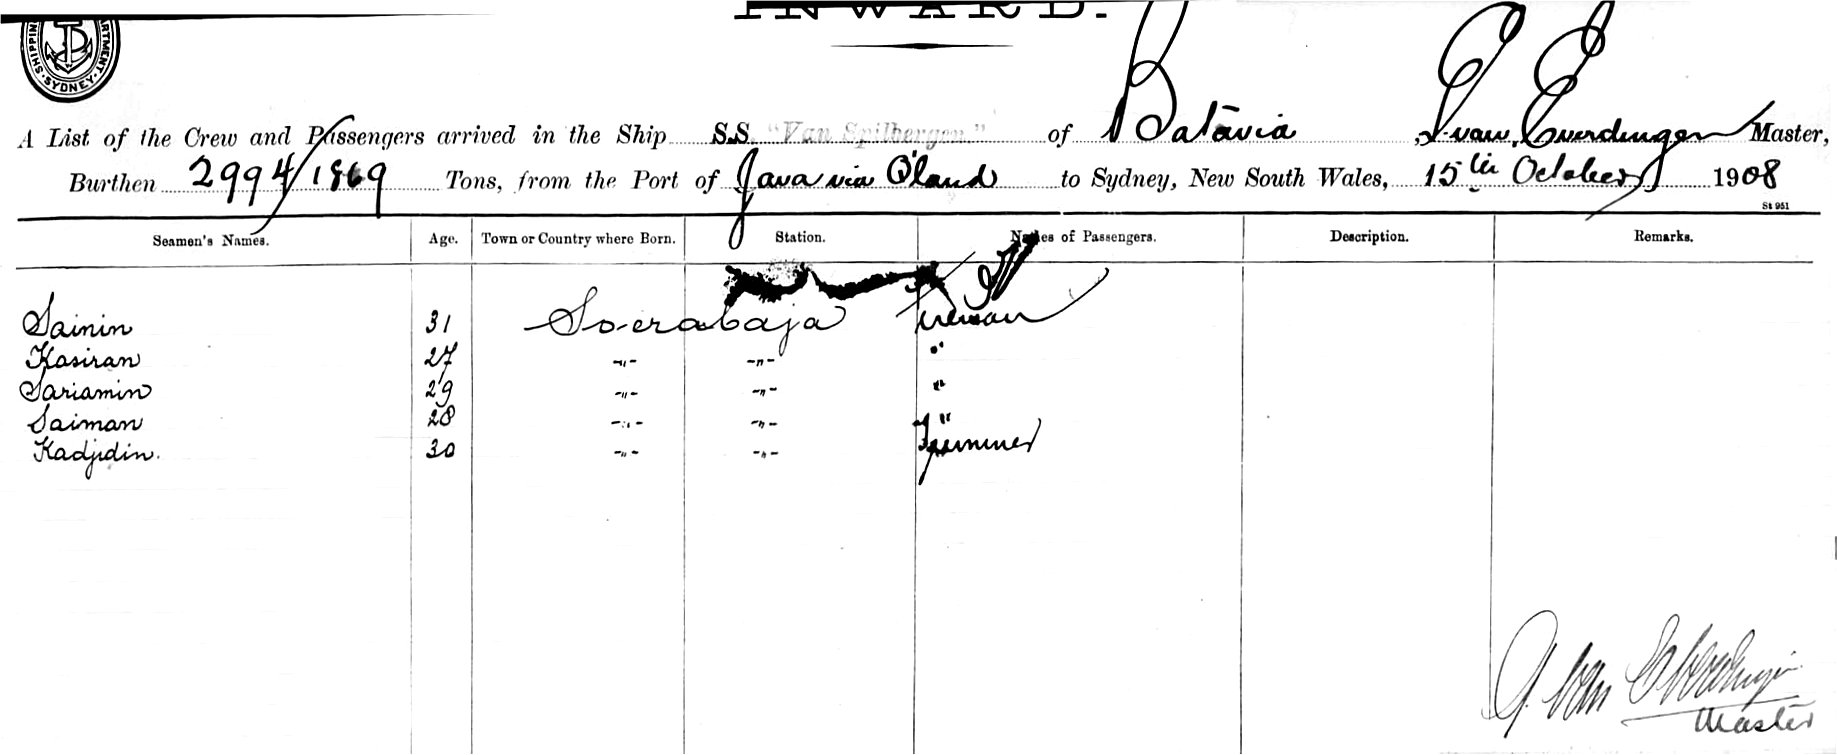 INWARD.
SHIPPIN ARTMENT. SYDNEY
A List of the Crew and Passengers arrived in the Ship S.S. "Van Spilbergen" of Batavia, G. van Everdingen Master,
Burthen 2994/1869 Tons, from the Port of Java via Q'land to Sydney, New South Wales, 15th October 1908
St 951
Seamen's Names. Age. Town or Country where Born. Station. Names of Passengers. Description. Remarks.
Sainin 31 Soerabaja Fireman
Kasiran 27 -"- -"- "
Sariamin 29 -"- -"- "
Saiman 28 -"- -"- "
Kadjidin. 30 -"- -"- Trimmer
G. van Everdingen
Master